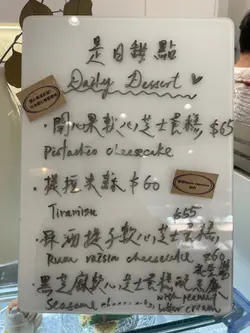 是日甜點
Daily Dessert ♥
• 開心果軟心芝士蛋糕 $65
Pistachio cheesecake
• 提拉米蘇 $60
Tiramisu
$65
• 冧酒提子軟心芝士蛋糕
Rum raisin cheesecake $60
• 黑芝麻軟心芝士蛋糕配花生醬忌廉
Seasame cheesecake with peanut butter cream